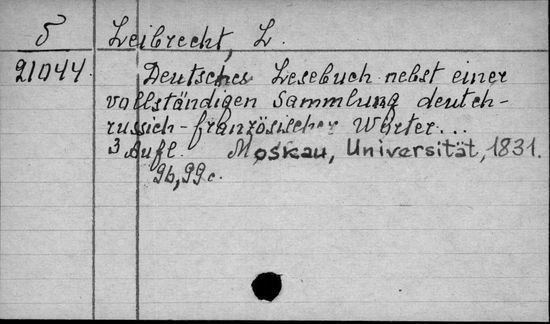 5 Leibrecht, L.
21044. Deutsches Lesebuch nebst einer
vollständigen Sammlung deutch-
russich-französischer Wörter...
3 Aufl. Moskau, Universität, 1831.
96,99 c.